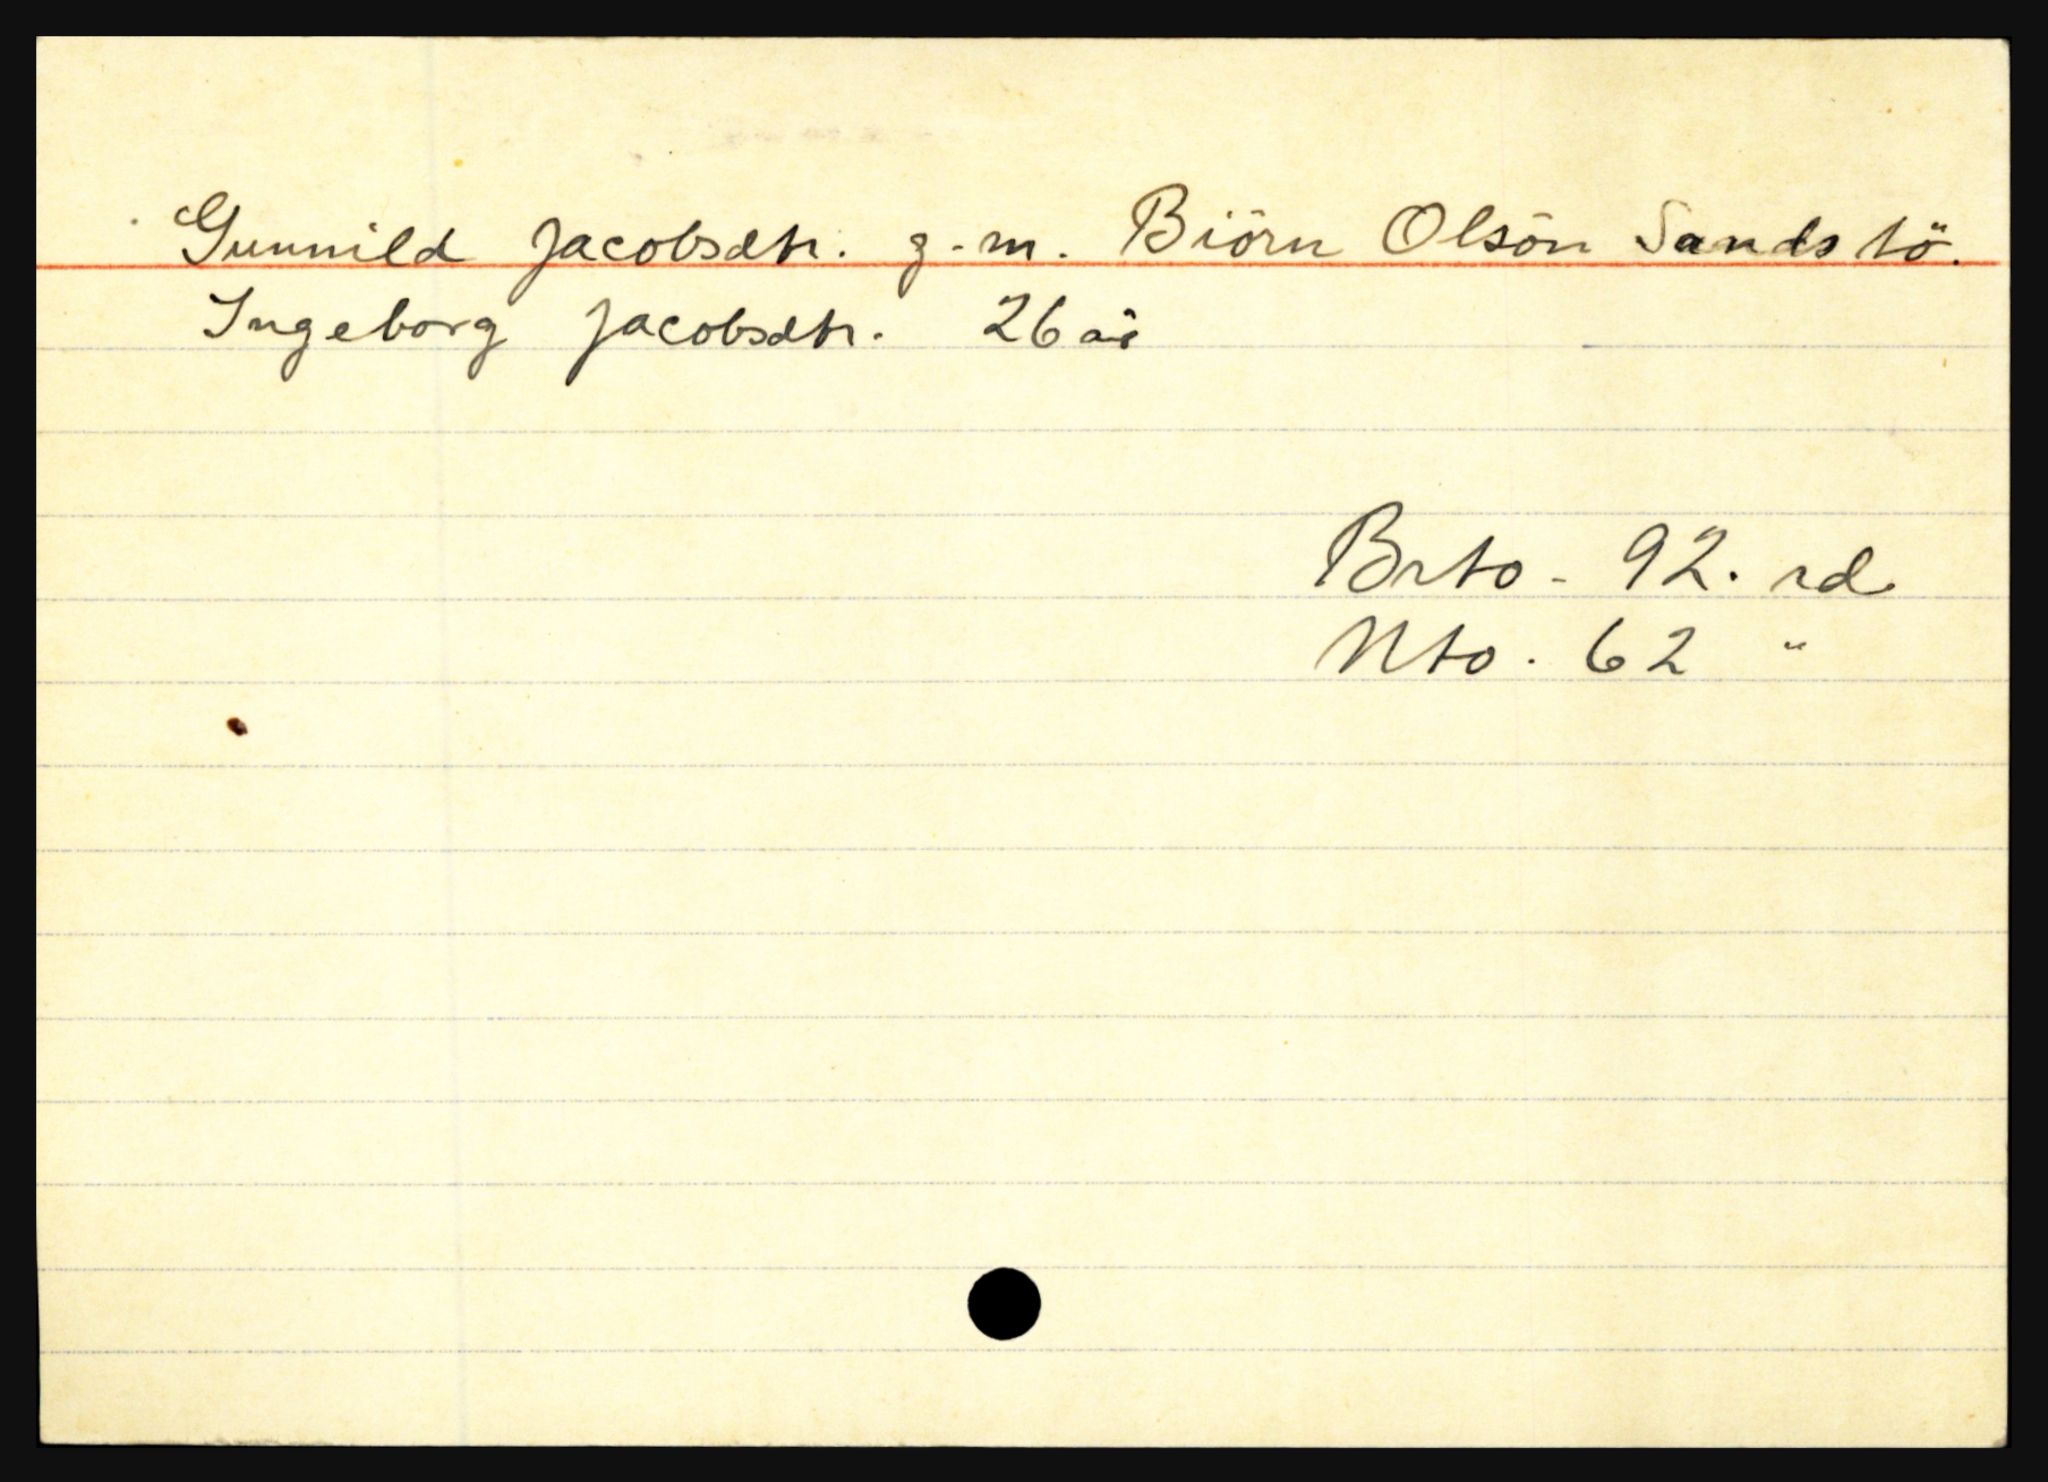 Gunnild Jacobsdtr. g.m. Biörn Olsön Sandstö.
Ingeborg Jacobsdtr. 26 år
Brto - 92. rd
Nto. 62 "